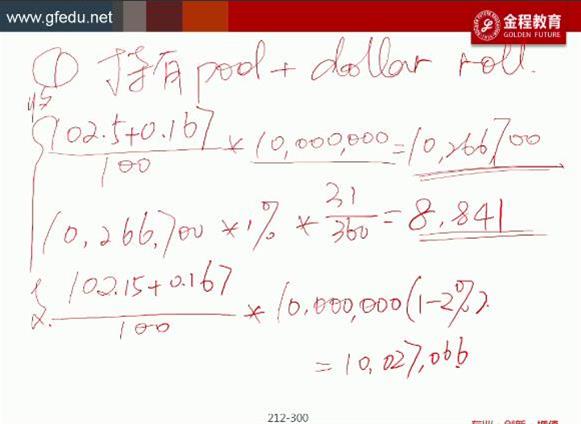 www.gfedu.net
金程教育
GOLDEN FUTURE
① 持有pool + dollar roll.
收
102.5+0.167/100 * 10,000,000 = 10,266,700
10,266,700 * 1% * 31/360 = 8,841
支 102.15+0.167/100 * 10,000,000(1-2%).
= 10,027,066
212-300
专业·创新·增值